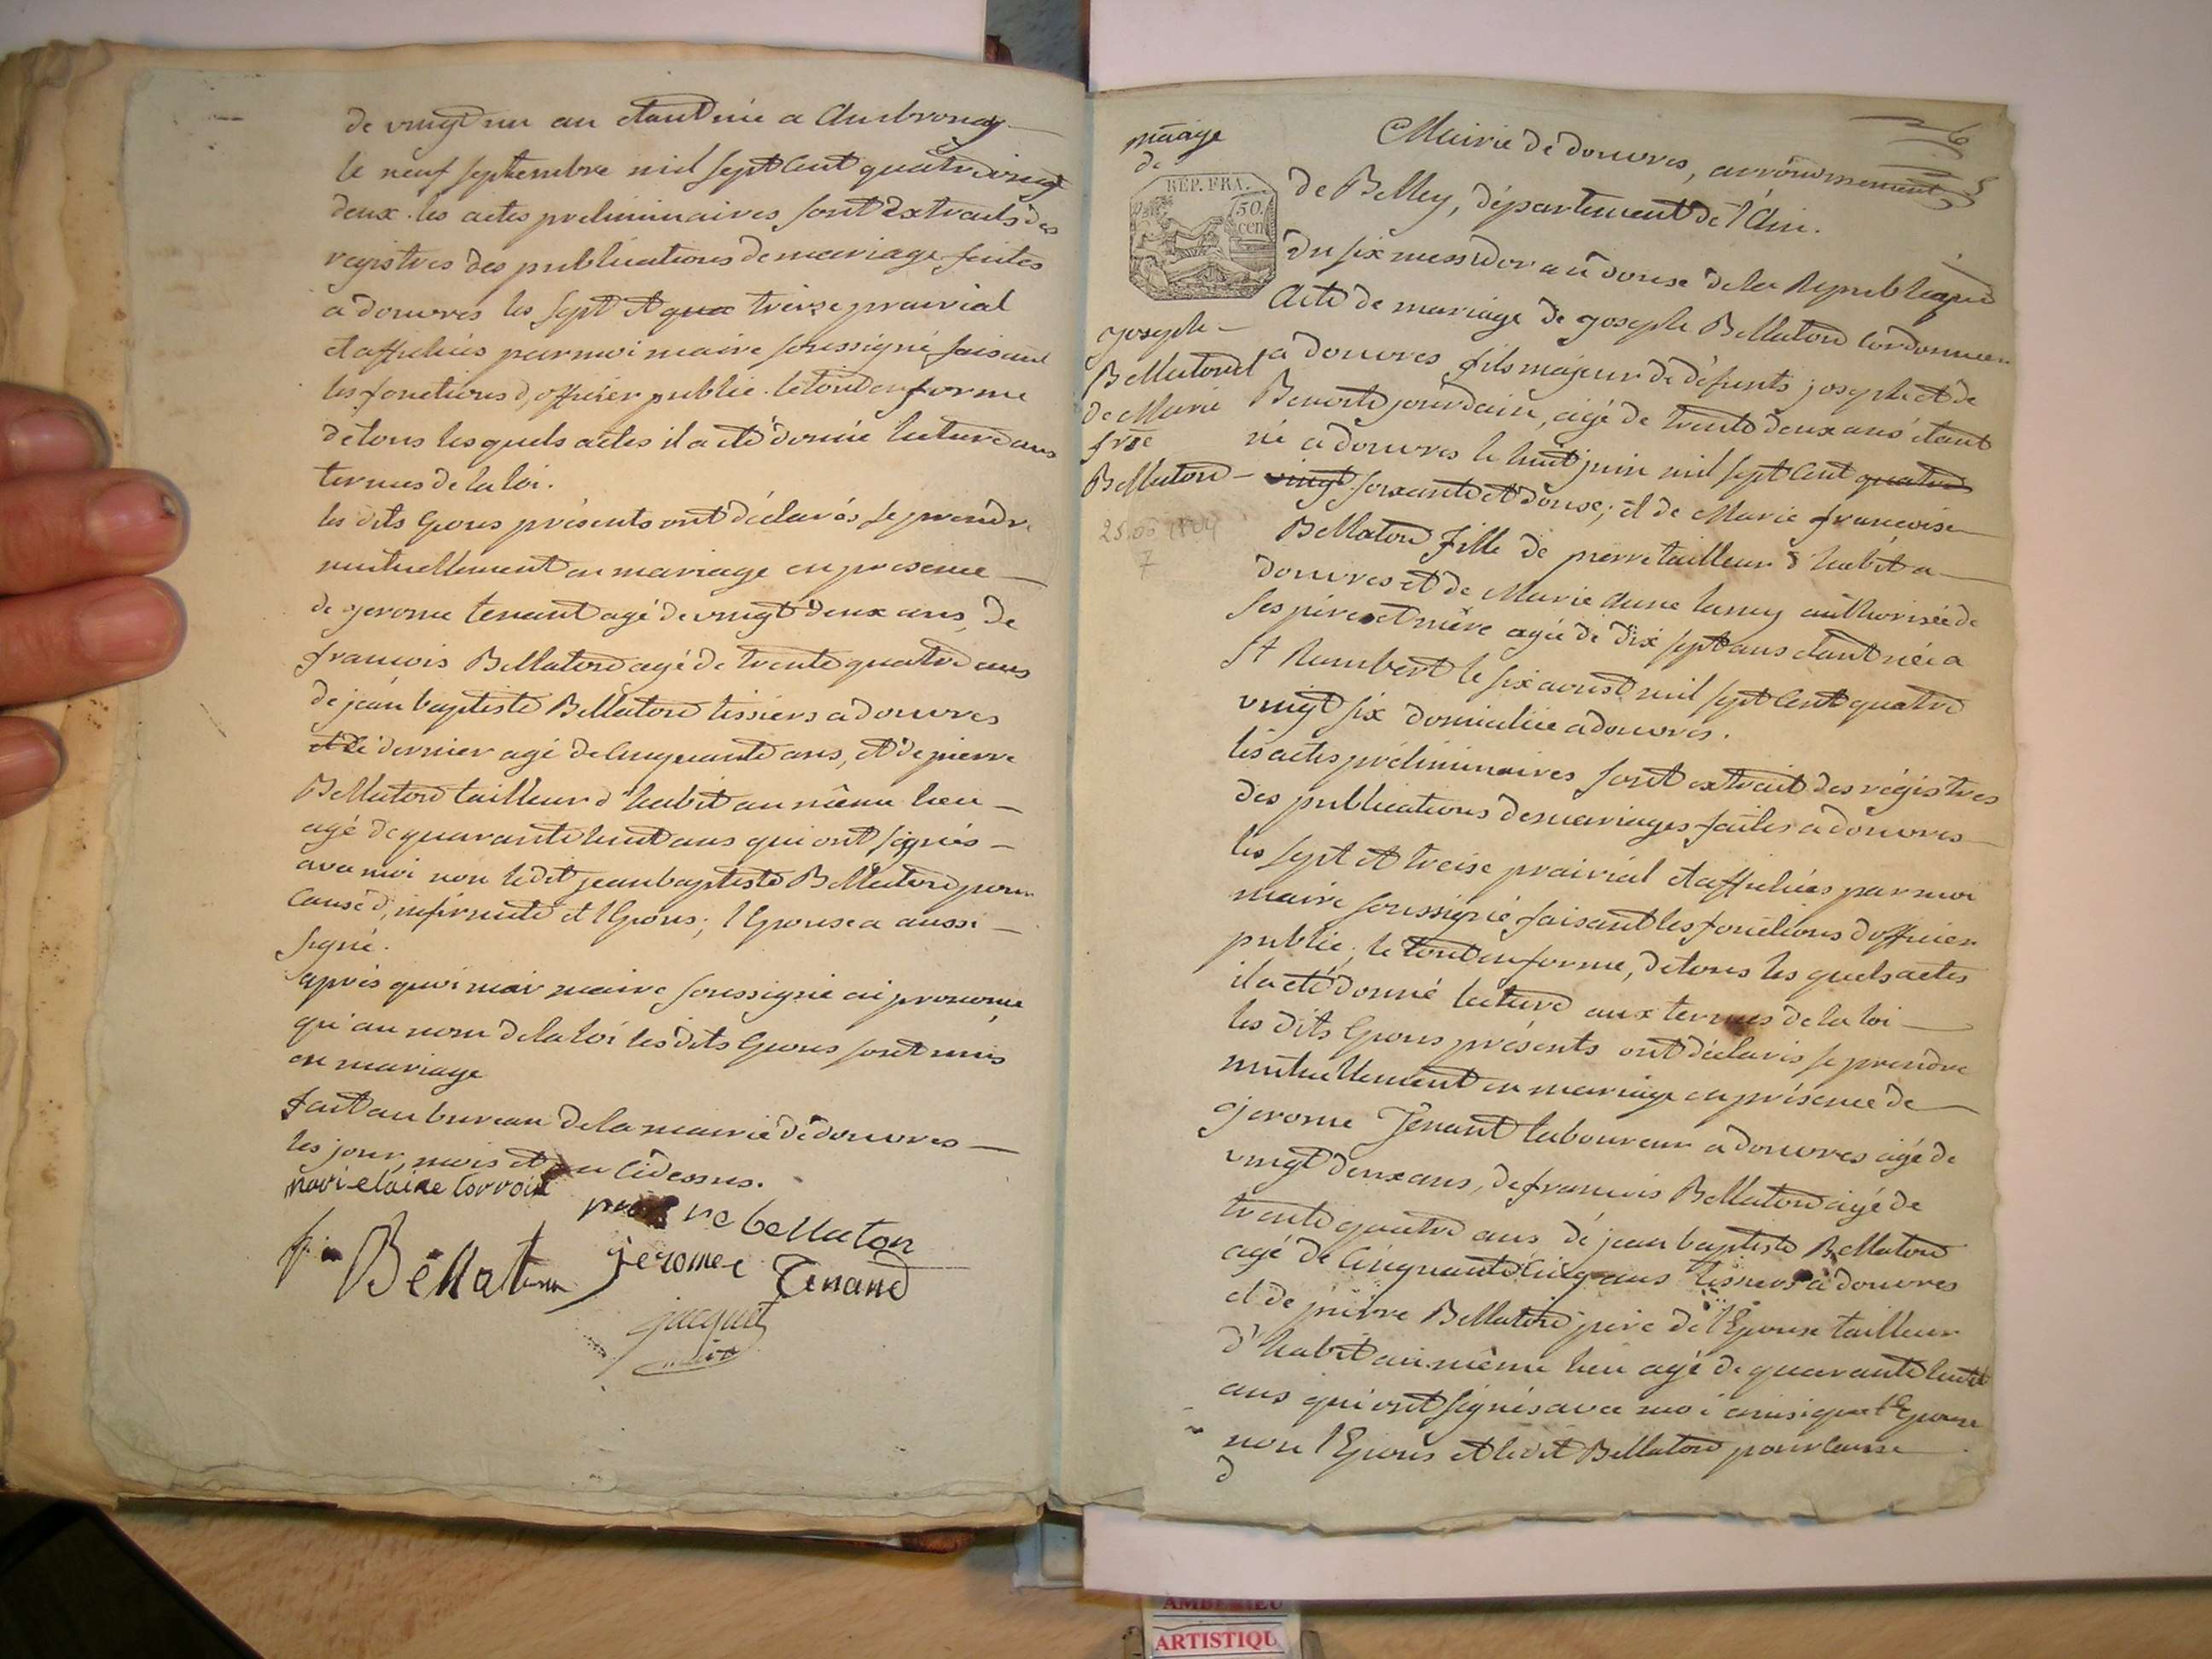 de vingt un an etant née a Ambronay
le neuf septembre mil sept Cent quatrevingt
deux. les actes preliminaires sont Extraits des
registres des publications de mariage faites
a douvres les sept et qua treize prairial
et affichées par moi maire soussigné faisant
les fonctions d'officier public. le tout en forme
de tous lesquels actes il a été donnée lecture aux
termes de la loi.
les dits Epoux présents ont déclarés se prendre
mutuellement en mariage en présence
de jerome tenant agé de vingt deux ans, de
françois Bellaton agé de trente quatre ans
de jean baptiste Bellaton tissiers a douvres
et le dernier agé de Cinquante ans, et de pierre
Bellaton tailleur d'habit au même lieu
agé de quarante huit ans qui ont signés
avec moi non le dit jean baptiste Bellaton pour
Cause d'infirmité et l'Epoux; l'Epouse a aussi
signé.
après quoi moi maire soussigné ai prononcé
qu'au nom de la loi les dits Epoux sont unis
en mariage
fait au bureau de la mairie de douvres
les jour, mois et an Cidessus.
mari claire Corroit
pierre bellaton
Bellaton jerome Tenand
jacquet
maire
mariage
de
REP. FRA.
50.
cen
joseph
Bellaton et
de Marie
frse
Bellaton
25.06 1804
7
Mairie de douvres, arrondissement
de Belley, département de l'Ain.
du six messidor an douse de la République
Acte de mariage de joseph Bellaton Cordonnier
a douvres fils majeur de défunts joseph et de
Benoite jourdain, agé de trente deux ans étant
né a douvres le huit juin mil sept Cent quatre
vingt soixante et douse; et de Marie françoise
Bellaton fille de pierre tailleur d'habit a
douvres et de Marie Anne authorisée de
ses père et mère agée de dix sept ans etant née a
St Rambert le six aoust mil sept Cent quatre
vingt six domiciliée a douvres.
les actes préliminaires sont extrait des régistres
des publications de mariages faites a douvres
les sept et treise prairial et affichées par moi
maire soussigné faisant les fonctions d'officier
public, le tout en forme, de tous les quels actes
il a été donné lecture aux termes de la loi
les dits Epoux présents ont déclarés se prendre
mutuellement en mariage en présence de
jerome Tenant laboureur a douvres agé de
vingt deux ans, de francois Bellaton agé de
trente quatre ans de jean baptiste Bellaton
agé de Cinquante Cinq ans tissiers a douvres
et de pierre Bellaton père de l'Epouse tailleur
d'habit au même lieu agé de quarante huit
ans qui ont signés avec moi ainsi que l'Epouse
non l'Epoux et le dit Bellaton pour Cause
d
AMBERIEU
ARTISTIQU